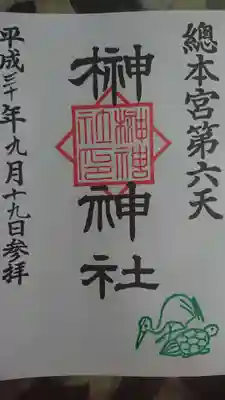 總本宮第六天
榊神社
平成三十年九月十九日参拝